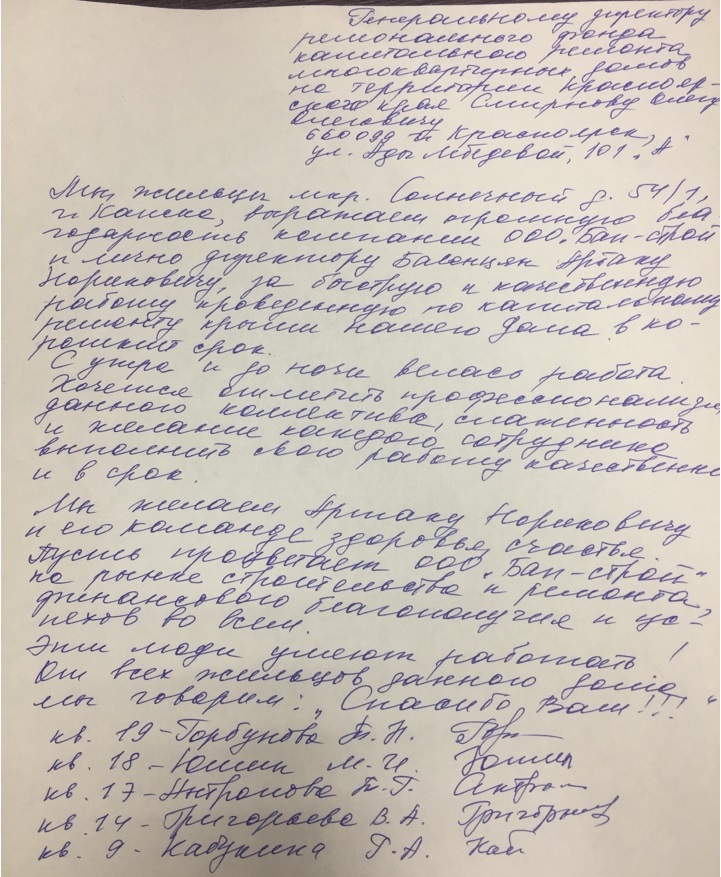 Генеральному директору
регионального фонда
капитального ремонта
многоквартирных домов
на территории Краснояр-
ского края Смирнову Олегу
Олеговичу
660099 г. Красноярск,
ул. Ады Лебедевой, 101 "А"
Мы, жильцы мкр. Солнечный д. 54/1,
г. Канска, выражаем огромную бла-
годарность компании ООО "Бап-строй
и лично директору Басенцян Артаку
Нориковичу, за быструю и качественную
работу проведенную по капитальному
ремонту крыши нашего дома в ко-
роткий срок.
С утра и до ночи велась работа.
Хочется отметить профессионализм
данного коллектива, слаженность
и желание каждого сотрудника
выполнить свою работу качественно
и в срок.
Мы желаем Артаку Нориковичу
и его команде здоровья, счастья.
Пусть процветает ООО "Бап-строй"
на рынке строительства и ремонта,
финансового благополучия и ус-
пехов во всем.
Эти люди умеют работать!
От всех жильцов данного дома
мы говорим: "Спасибо Вам!!!"
кв. 19 - Горбунова Т. Н.
кв. 18 - Юшин М. И.
кв. 17 - Антропова Т. Г.
кв. 14 - Григорьева В. А.
кв. 9 - Кабукина Г. А.